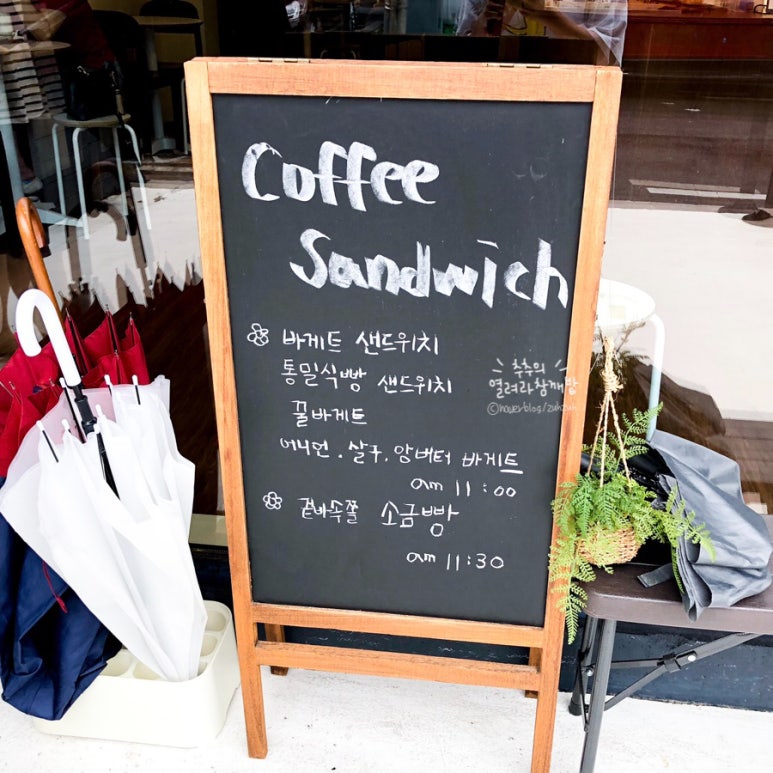 Coffee
Sandwich
바게트 샌드위치
통밀식빵 샌드위치
꿀바게트
어니언 . 살구 . 앙버터 바게트
am 11:00
겉바속쫄 소금빵
am 11:30
츄츄의
열려라참깨밥